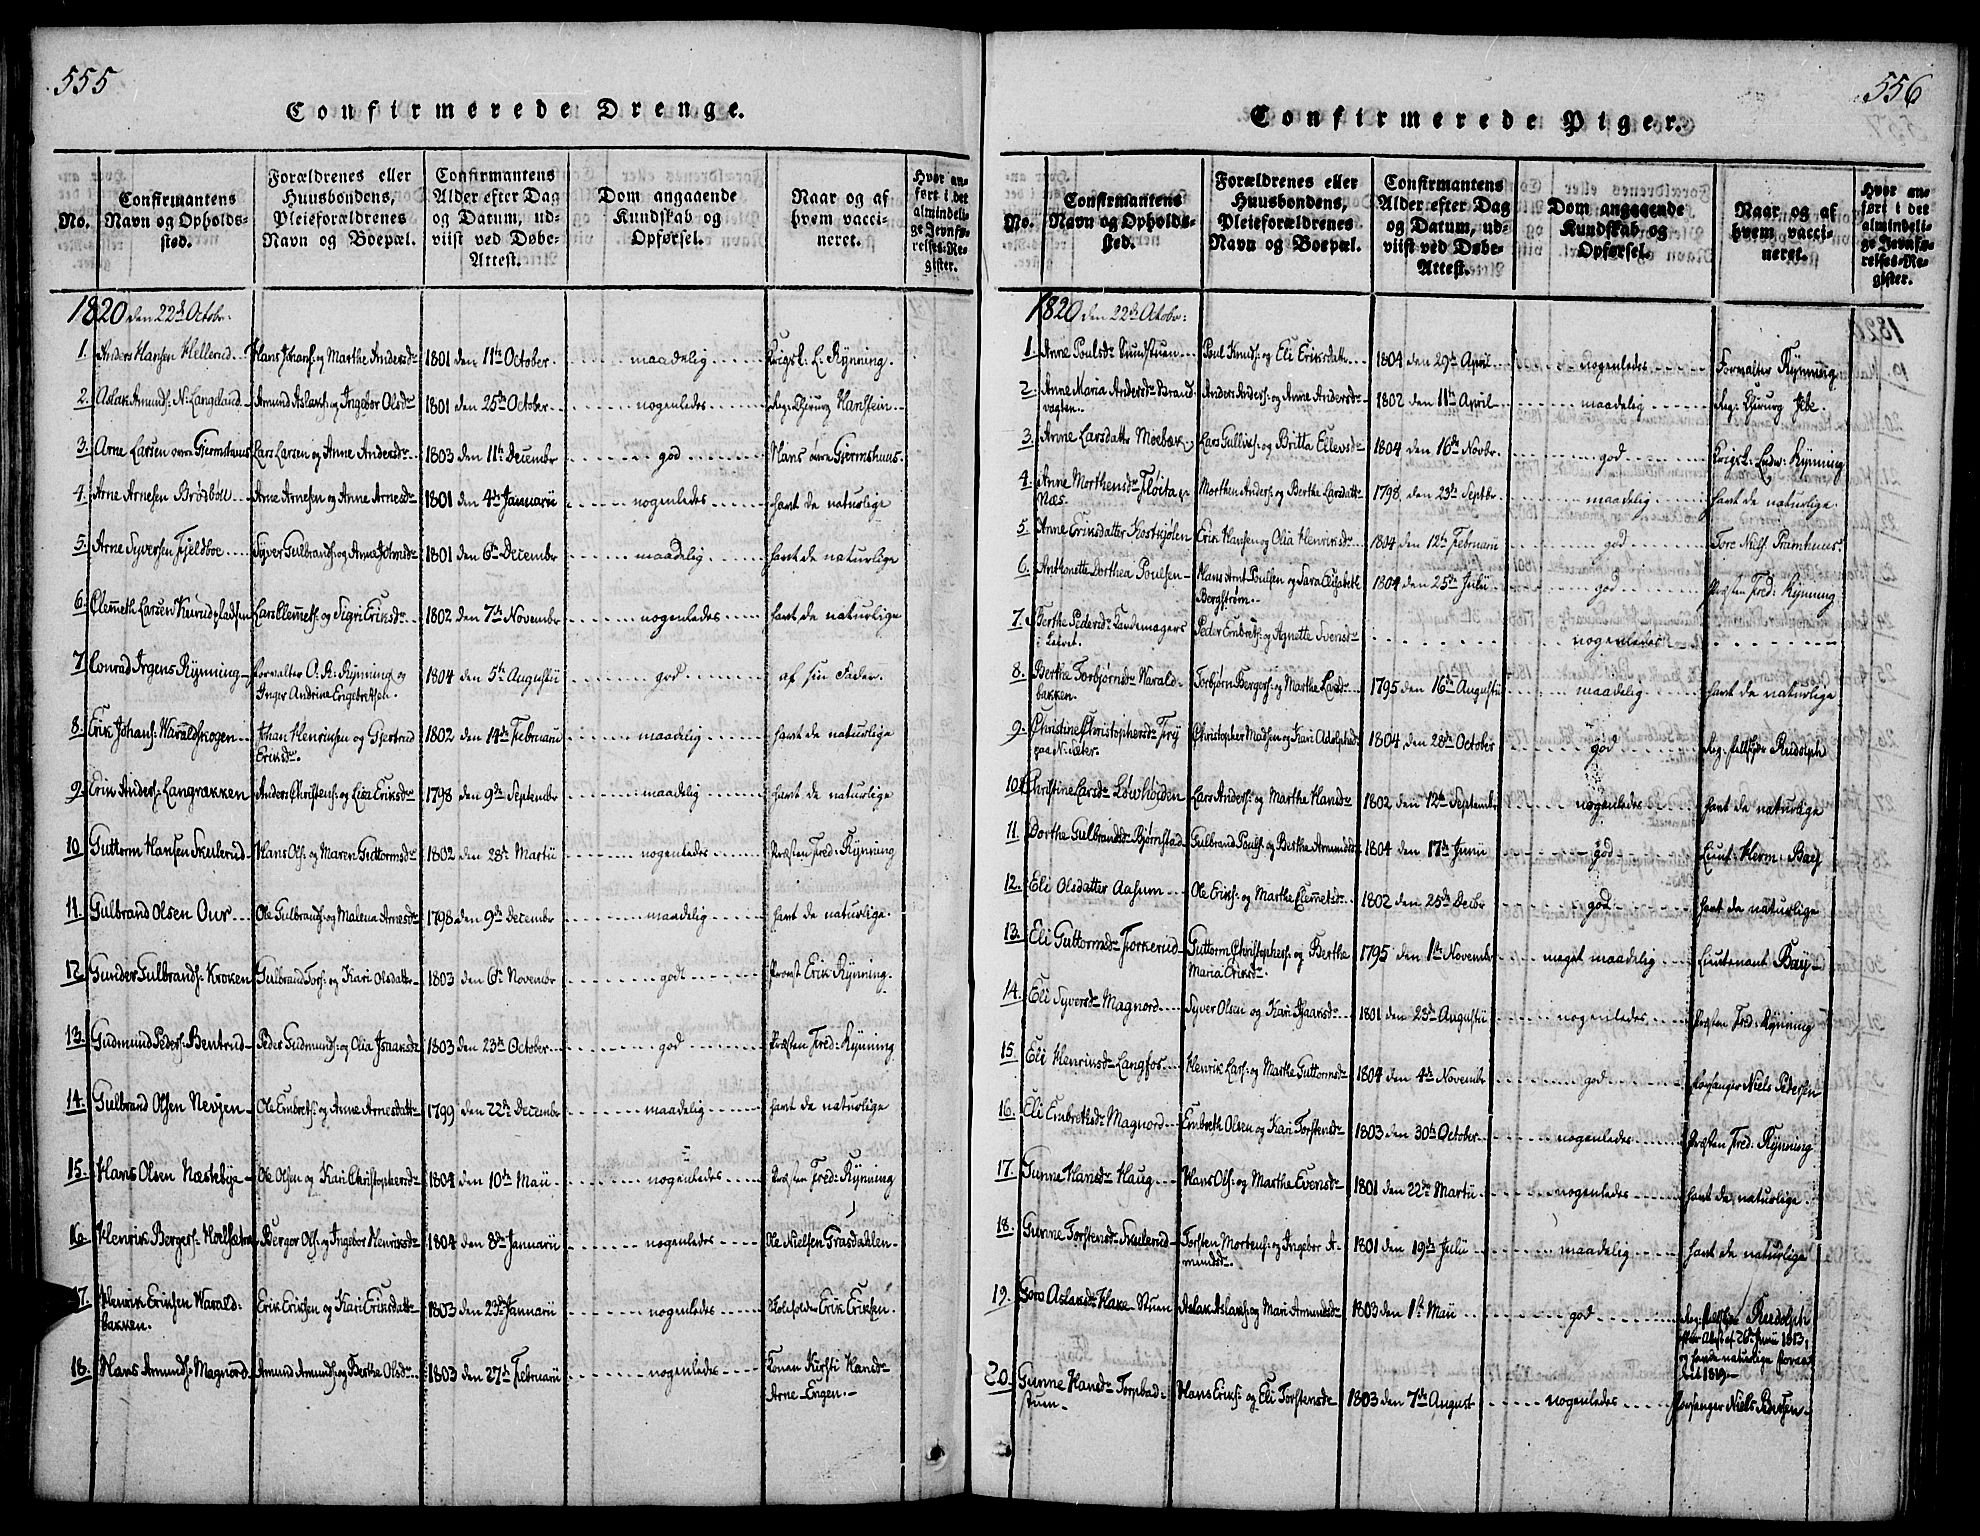 555
Confirmerede Drenge.
No.
Confirmantens Navn og Opholds-sted.
Forældrenes eller Huusbondens, Pleieforældrenes Navn og Boepæl.
Confirmantens Alder efter Dag og Datum, ud-viist ved Døbe-Attest.
Dom angaaende Kundskab og Opførsel.
Naar og af hvem vacci-neret.
Hvor an-ført i det almindeli-ge Jevnfø-relses-Re-gister.
1820 den 22de Octobr:
1. Anders Hansen Hellerud Hans Johans: og Marthe Andersdr 1801 den 11te October maadelig Krigsk. L. Rynning.
2. Aslak Amunds: N: Langeland Amund Aslaks: og Ingebor Olsdr 1801 den 25de October nogenledes Reg: Chirurg Hanstein
3. Arne Larsen øvre Gjermshuus Lars Larsen og Anne Andersdr 1803 den 11te Decembr god Hans øvre Gjermshuus.
4. Arne Arnesen Brødboll Arne Arnesen og Anne Arnesdr 1801 den 4de Januarii nogenledes havt de naturlige
5. Arne Syversen Fjeldboe Syver Gulbrands: og Anne 1801 den 6te December maadelig havt de naturlige
6. Clemeth Larsen Lars Clemets: og Sigri Eriksdr 1802 den 7de Novembr nogenledes havt de naturlige
7. Conrad Irgens Rynning Forvalter O. R. Rynning og 1804 den 5te Augustii god af sin Fader.
Inger Andrina Engebretsen.
8. Erik Johans: Waraldskogen Johan Henriksen og Gjertrud 1802 den 14de Februarii maadelig havt de naturlige
Eriksdr.
9. Erik Anders: Langrækken Anders Christens: og Lisa Eriksdr 1798 den 9de Septembr maadelig havt de naturlige
10. Guttorm Hansen Skulerud Hans Ols: og Maren Guttormsdr 1802 den 28de Martii nogenledes Præsten Fred: Rynning
11. Gulbrand Olsen Our Ole Gulbrands: og Malena Arnesdr 1798 den 9de Decembr maadelig havt de naturlige.
12. Gunder Gulbrands: Kroken Gulbrand Tors: og Kari Olsdatr 1803 den 6te Novembr godt Provst Erik Rynning.
13. Gudmund Peders: Bentrud Peder Gudmunds: og Olia Isaaksdr 1803 den 23de October god Præsten Fred: Rynning
14. Gulbrand Olsen Nevjen Ole Embrets: og Anne Arnesdatr 1799 den 22de Decembr maadelig havt de naturlige
15. Hans Olsen Næstebye Ole Olsen og Kari Christophersdr 1804 den 10de Maii nogenledes Præsten Fred: Rynning
16. Henrik Bergers: Berger Ols: og Ingebor Henriksdr 1804 den 8de Januarii nogenledes Ole Nielsen Grasdahlen
17. Henrik Eriksen Warald- Erik Eriksen og Kari Eriksdatr 1803 den 23de Januarii nogenledes Erik Eriksen
bakken.
18. Hans Amunds: Magnord Amund Amunds: og Berthe Olsdr 1803 den 27de Februarii nogenledes Konen Kirsti Hansdr
Arne-Engen.
556
Confirmerede Piger.
No.
Confirmantens Navn og Opholds-sted.
Forældrenes eller Huusbondens, Pleieforældrenes Navn og Boepæl.
Confirmantens Alder efter Dag og Datum, ud-viist ved Døbe-Attest.
Dom angaaende Kundskab og Opførsel.
Naar og af hvem vacci-neret.
Hvor an-ført i det almindeli-ge Jevnfø-relses-Re-gister.
1820 den 22de Octobr:
1. Anne Poulsdr Sundstuen Poul Knuds: og Eli Eriksdatr 1804 den 29de April nogenledes Forvalter Rynning
2. Anne Maria Andersdr Brand- Anders Anders: og Anne Andersdr 1802 den 11te April maadelig Reg: Chirurg
vagten.
3. Anne Larsdatr Moebæk Lars Gullius: og Britta Ellevsdr 1804 den 16de Novbr god Krigsk: Ludv: Rynning
4. Anne Morthensdr Fløita Morthen Anders: og Berthe Larsdatr 1798 den 23de Septbr maadelig havt de naturlige.
Næs.
5. Anne Eriksdatter Kostskjølen Erik Hansen og Olia Henriksdr 1804 den 12te Februarii god Tore Niels:
6. Anthonette Dorthea Poulsen Hans Arnt Poulsen og Sara Elisabeth 1804 den 25de Julii god Præsten Fred: Rynning
Bergstrøm.
7. Berthe Pedersdr Kandemagers Peder Embrets: og Agnette Svensdr nogenledes
8. Berthe Torbjørnsdr Warald- Torbjørn Bergers: og Marthe Larsdr 1795 den 16de Augustii maadelig havt de naturlige
bakken.
9. Christine Christophersdr Fry Christopher Madsen og Kari Adolphsdr 1804 den 28de October god Reg: Rudolph
paa N: Sæter.
10. Christine Larsdr Løvhøiden Lars Anders: og Marthe Hansdr 1802 den 12te Septembr nogenledes havt de naturlige
11. Dorthe Gulbrandsdr Bjørnstad Gulbrand Pouls: og Berthe Amundsdr 1804 den 17de Junii god Lieut: Herm: Baÿ
12. Eli Olsdatter Aasum Ole Eriks: og Marthe Clemetsdr 1802 den 25de Decbr god havt de naturlige
13. Eli Guttormsdr Torkerud Guttorm Christophers: og Berthe 1795 den 1te Novembr meget maadelig Lieutenant Baÿ
Maria Eriksdr.
14. Eli Syversdr Magnord Syver Olsen og Kari Isaaksdr 1801 den 23de Augustii nogenledes Præsten Fred: Rynning
15. Eli Henriksdr Langfos Henrik Lars: og Marthe Guttormsdr 1804 den 4de Novembr god Forsanger Niels Pedersen
16. Eli Embrethsdr Magnord Embreth Olsen og Kari Torstensdr 1803 den 30te October nogenledes Præsten Fred: Rynning
17. Gunne Hansdr Haug Hans Ols: og Marthe Evensdr 1801 den 22de Martii nogenledes havt de naturlige.
18. Gunne Torstensdr Skulerud Torsten Mortens: og Ingebor A- 1801 den 19de Julii maadelig havt de naturlige
mundsdr.
19. Goro Aslaksdr Hare-Stuen Aslak Aslaks: og Mari Amundsdr 1803 den 1te Maii god Reg: Rudolph
efter Attest af 26de Junii 1813,
og havde naturlige
til 1819
20. Gunne Hansdr Torpbad- Hans Eriks: og Eli Torstensdr 1803 den 7de August nogenledes Forsanger Niels Pedersen
stuen.